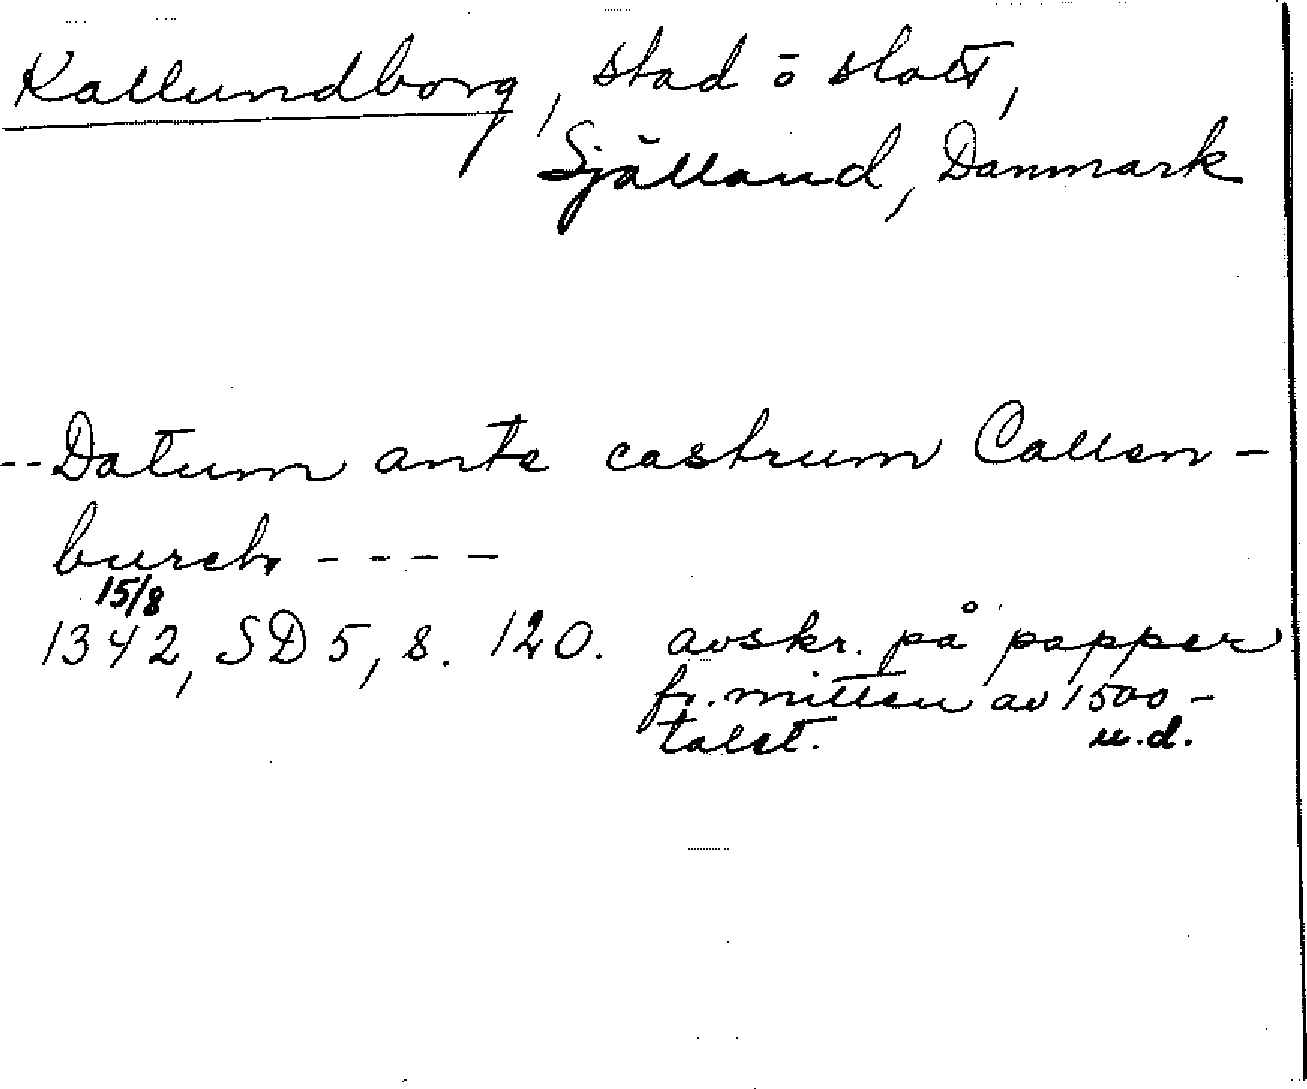 Kallundborg, stad o slott,
Själland, Danmark
-- Datum ante castrum Callen-
burch ----
15/8
1342, SD 5, s. 120. avskr. på papper
fr. mitten av 1500-
talet. u.d.